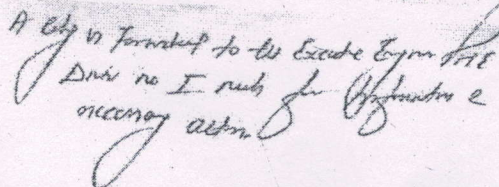 A copy is Forwarded to the Executive Engineer PHE
Divn no I for information &
necessary action